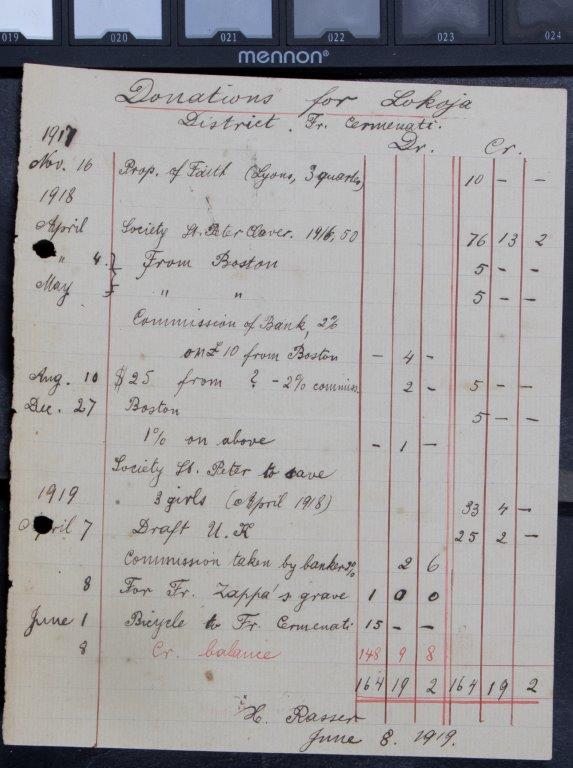 019 020 021 022 023 024
mennon®
Donations for Lokoja
District. Fr. Cermenati.
Dr. Cr.
1917
Nov. 16 Prop. of Faith (Lyons, 3 quarters) 10 - -
1918
April Society St. Peter Claver. 1916, 50 76 13 2
" 4. } From Boston 5 - -
May } " " 5 - -
Commission of Bank, 2%
on £10 from Boston - 4 -
Aug. 10 $25 from ? - 2% commiss. 2 - 5 - -
Dec. 27 Boston 5 - -
1% on above - 1 -
Society St. Peter to save
1919 3 girls (April 1918) 33 4 -
April 7 Draft U.K 25 2 -
Commission taken by banker 2% 2 6
8 For Fr. Zappa's grave 1 0 0
June 1 Bicycle to Fr. Cermenati 15 - -
8 Cr. balance 148 9 8
164 19 2 164 19 2
H. Rasser
June 8. 1919.